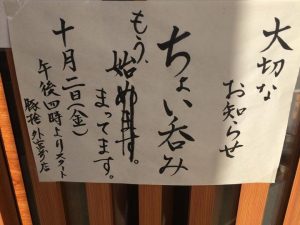 大切な
お知らせ
ちょい呑み
もう、始めます。
まってます。
十月二日(金)
午後四時よりスタート
豚捨 外宮前店